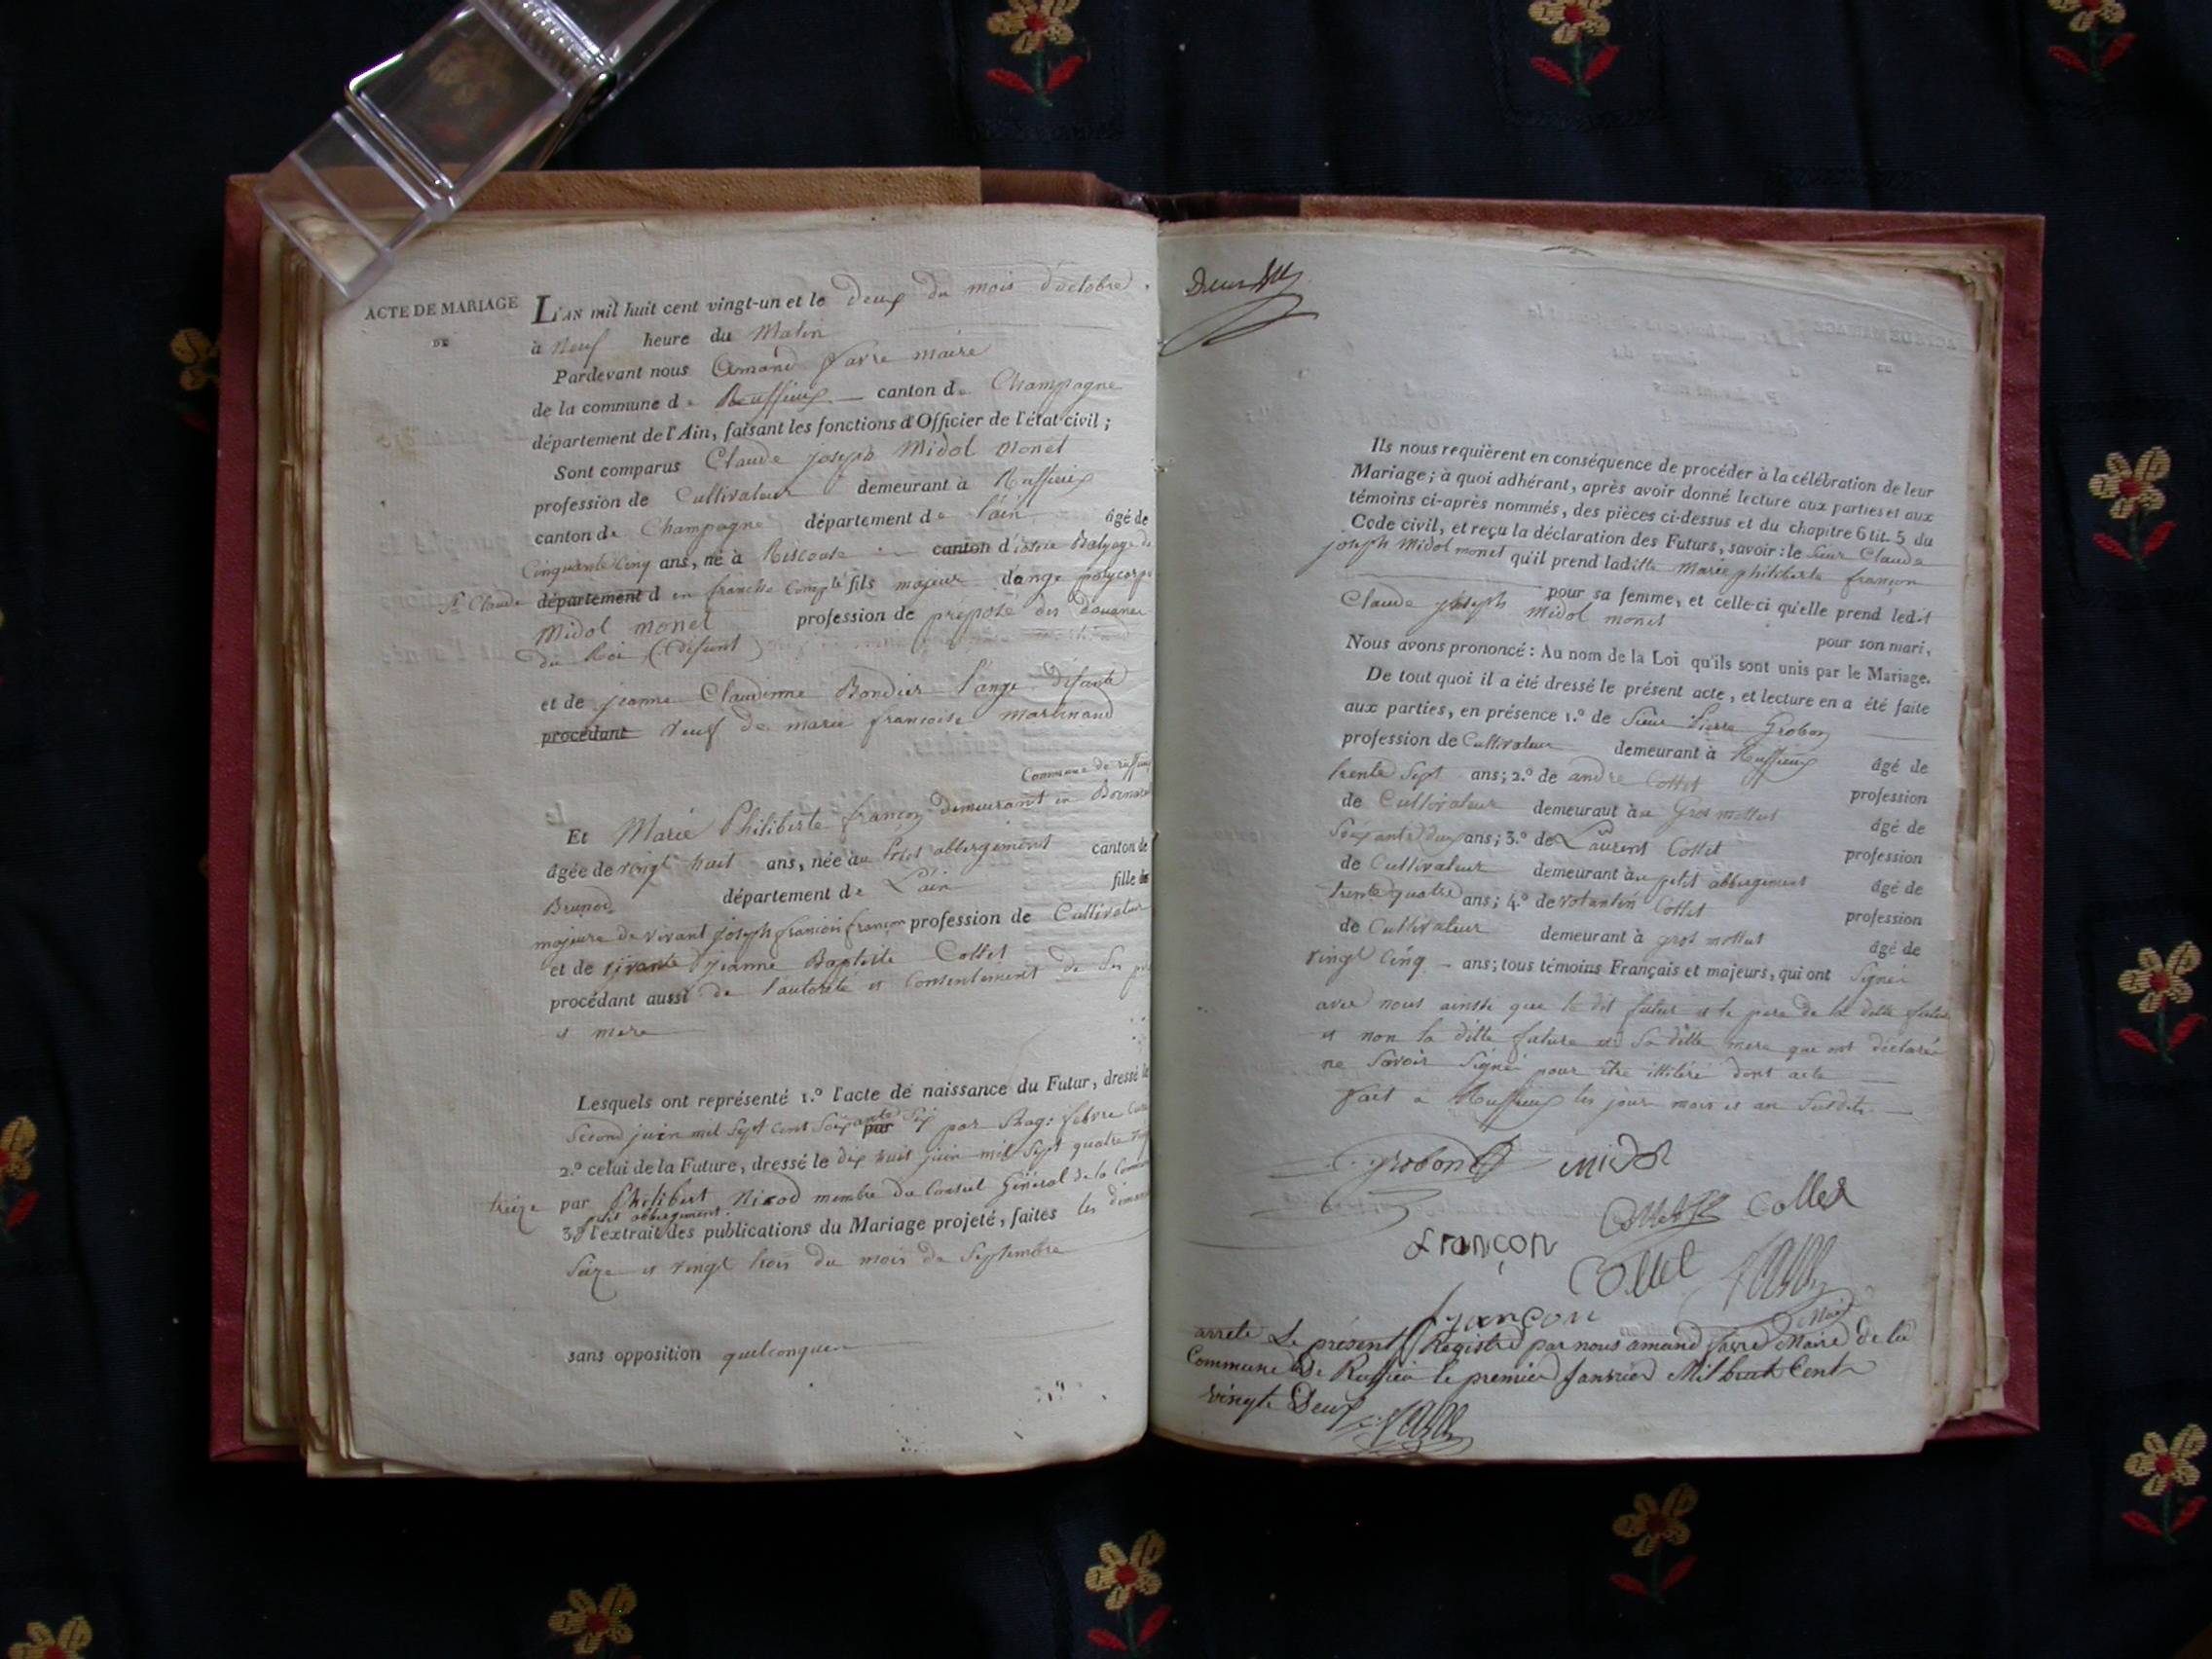 ACTE DE MARIAGE
DE
L'AN mil huit cent vingt-un et le deux du mois d'octobre
à Neuf heure du Matin
Pardevant nous Amand favre maire
de la commune de Ruffieux canton de Champagne
département de l'Ain, faisant les fonctions d'Officier de l'état civil ;
Sont comparus Claude joseph Midol monet
profession de Cultivateur demeurant à Ruffieux
canton de Champagne département de l'ain âgé de
Cinquante Cinq ans, né à canton
St Claude département d en franche Comté fils majeur d'ange polycarpe
Midol monet profession de préposé des douanes
du Roi (défunt)
et de jeanne Claudinne Bondier l'ange défunte
procédant veuf de marie francoise martinand
Commune de ruffieux
Et Marie Philiberte françon demeurant en
âgée de vingt huit ans, née au petit abbergement canton de
Brenod département de L'ain fille
majeure de vivant joseph francois françon profession de Cultivateur
et de vivante jeanne Baptiste Collet
procédant aussi de l'autorité et Consentement de ses
et mere
Lesquels ont représenté 1.º l'acte de naissance du Futur, dressé le
Second juin mil Sept Cent Soixante Six par febvre
2.º celui de la Future, dressé le dix huit juin mil Sept quatre vingt
treize par Philibert Nicod membre du Conseil Général de la Commune
petit abbergement
3.º l'extrait des publications du Mariage projeté, faites les dimanches
Seize et vingt trois du mois de Septembre
sans opposition quelconque
Ils nous requièrent en conséquence de procéder à la célébration de leur
Mariage; à quoi adhérant, après avoir donné lecture aux parties et aux
témoins ci-après nommés, des pièces ci-dessus et du chapitre 6 tit. 5 du
Code civil, et reçu la déclaration des Futurs, savoir: le Sieur Claude
joseph Midol monet qu'il prend laditte marie philiberte françon
pour sa femme, et celle-ci qu'elle prend ledit
Claude joseph Midol monet
pour son mari,
Nous avons prononcé: Au nom de la Loi qu'ils sont unis par le Mariage.
De tout quoi il a été dressé le présent acte, et lecture en a été faite
aux parties, en présence 1.º de Sieur Pierre Grobon
profession de Cultivateur demeurant à Ruffieux âgé de
trente Sept ans; 2.º de andre Collet profession
de Cultivateur demeurant au Gros mollut âgé de
Soixante deux ans; 3.º de Laurent Collet profession
de Cultivateur demeurant au petit abbergement âgé de
trente quatre ans; 4.º de Collet profession
de Cultivateur demeurant à gros mollut âgé de
vingt Cinq ans; tous témoins Français et majeurs, qui ont Signé
avec nous ainsie que le dit futur et le pere de la ditte future
et non la ditte future et Sa ditte mere que ont déclaré
ne Savoir Signé pour être illitéré dont acte
fait a Ruffieux les jour mois et an Susdits
Grobon Midol
Collet Collet
françon
Collet
françon
Maire
arrete Le présent Registre par nous amand favre Maire de la
Commune De Ruffieu le premier Janvier Mil huit Cent
vingt Deux